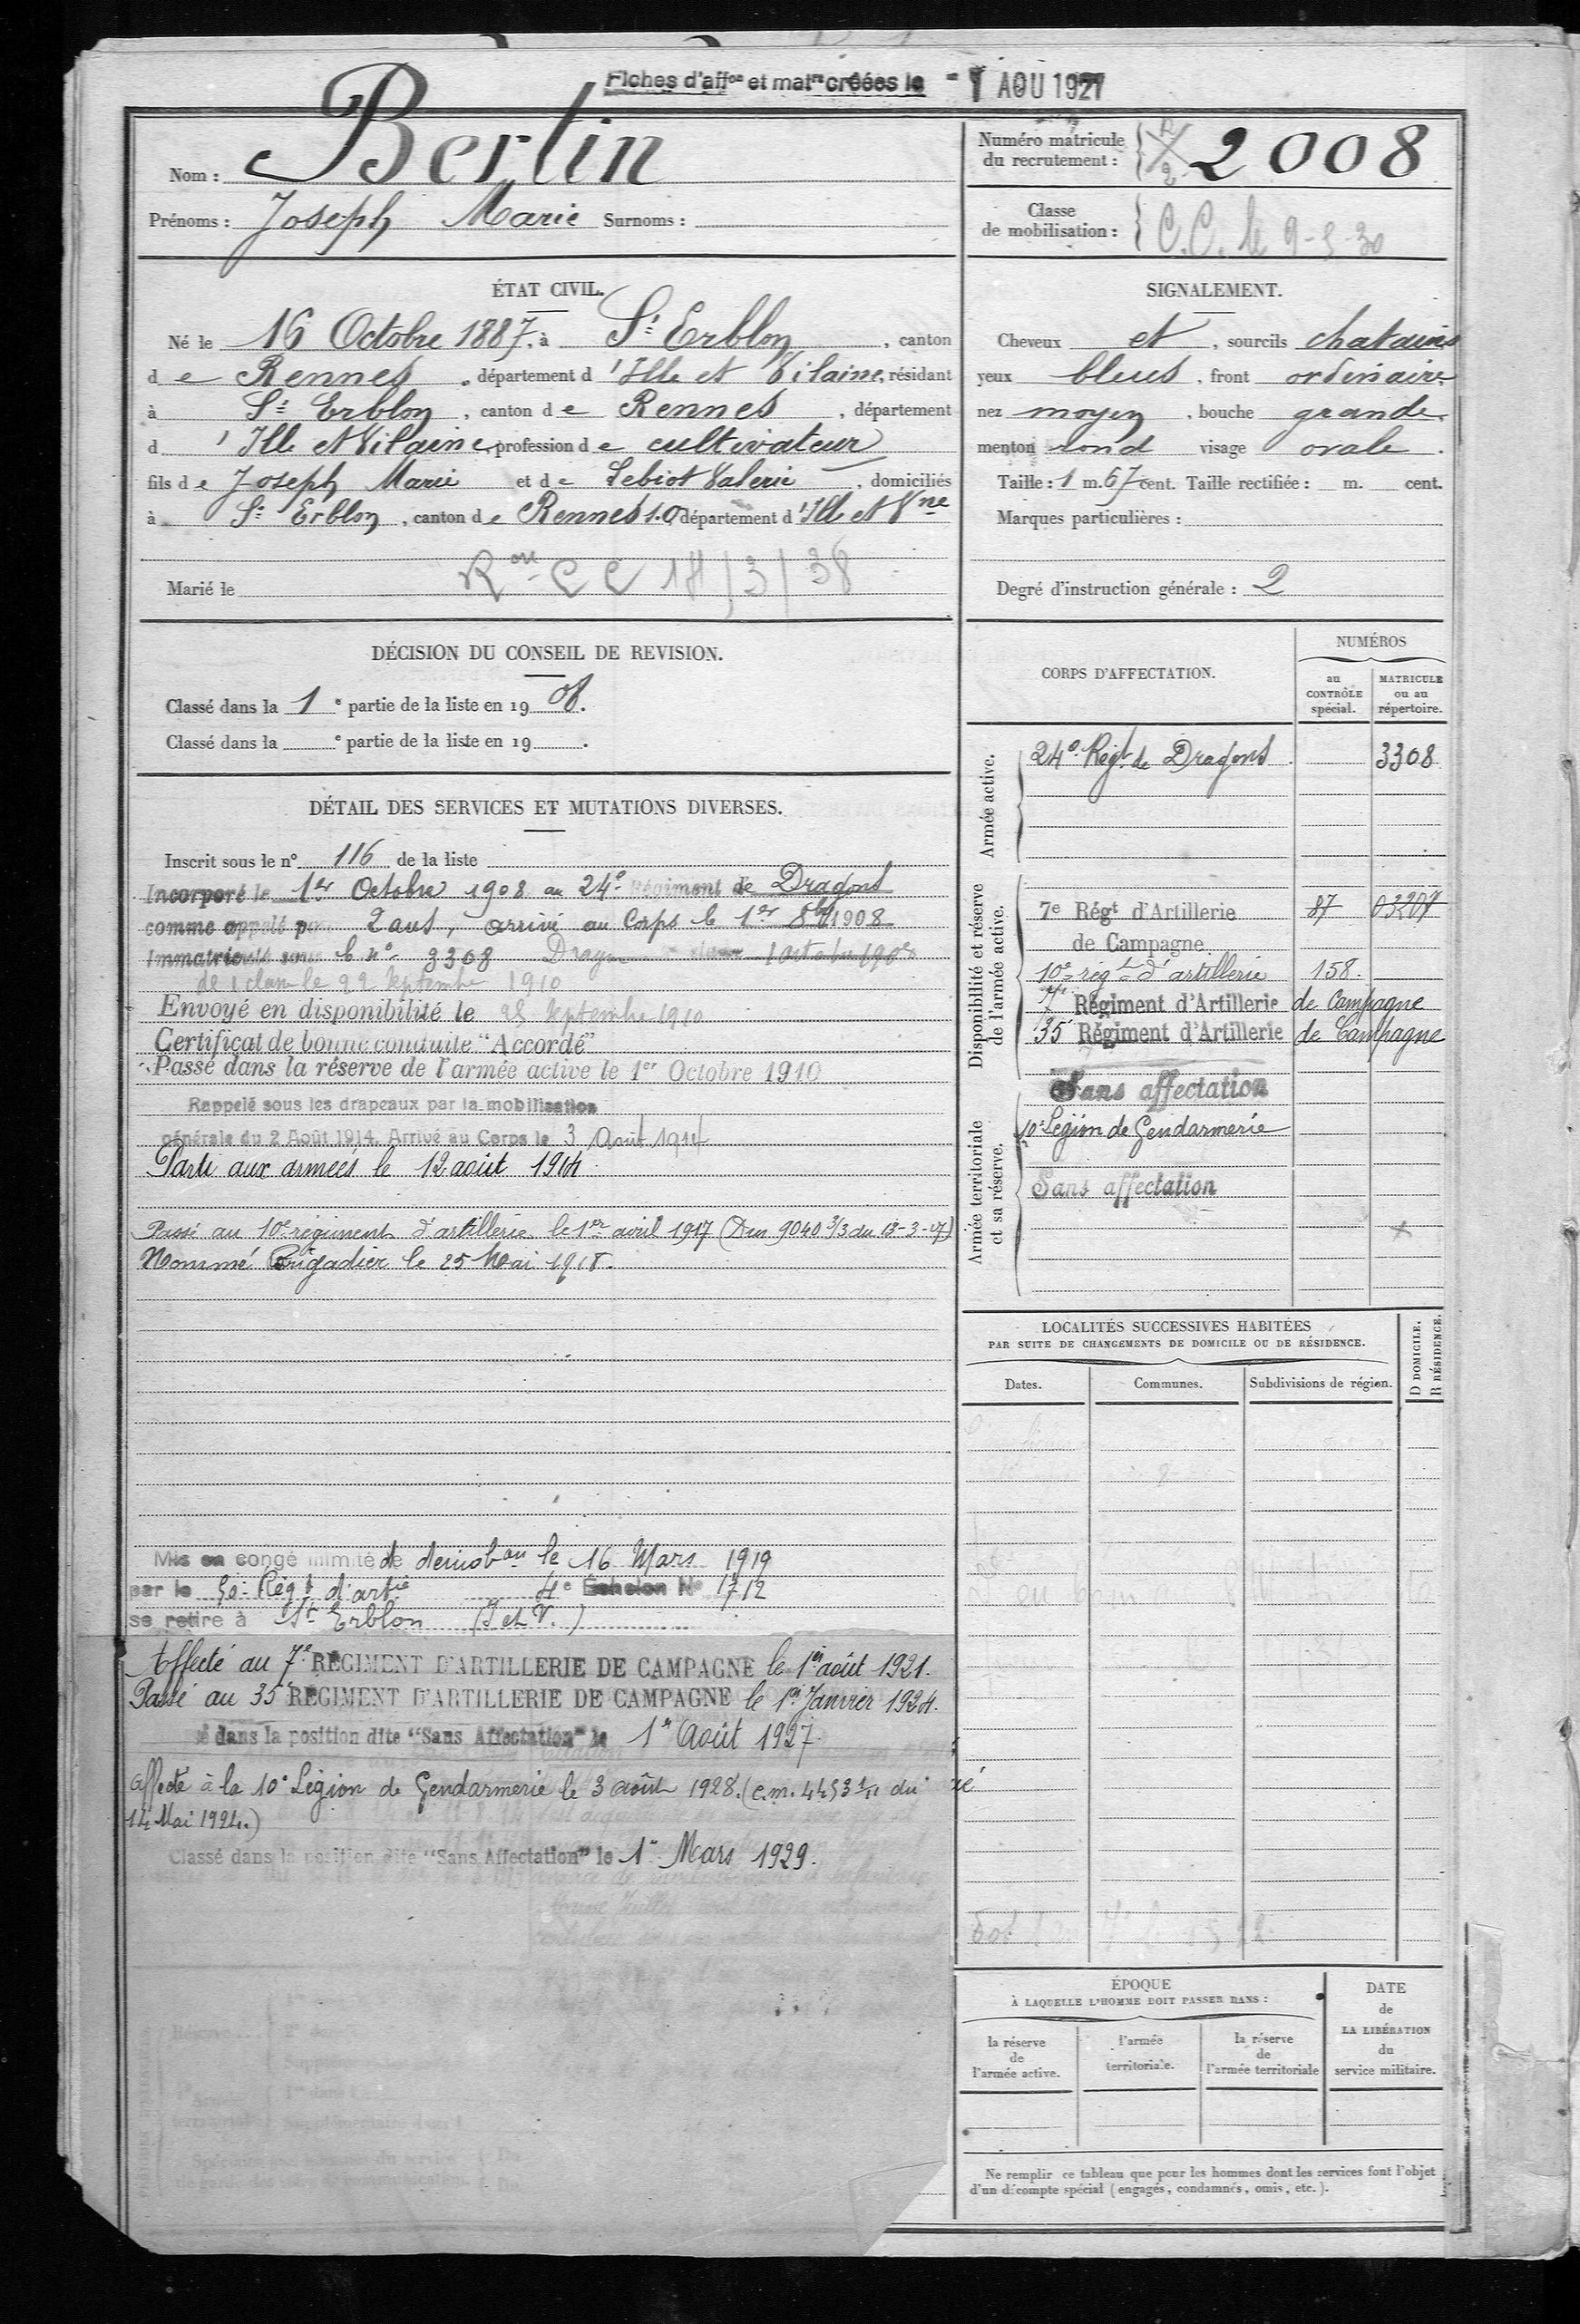 Fiches d'aff.on et mat.re créées le - 1 AOU 1927
Nom : Bertin
Prénoms : Joseph Marie Surnoms :
Numéro matricule du recrutement : 2008
Classe de mobilisation : C.C. le 9-5-30
ÉTAT CIVIL.
Né le 16 Octobre 1887, à St Erblon, canton
de Rennes, département d'Ille et Vilaine, résidant
à St Erblon, canton de Rennes, département
d'Ille et Vilaine, profession de cultivateur
fils de Joseph Marie et de Lebiot Valerie, domiciliés
à St Erblon, canton de Rennes S.O département d'Ille et Vne
Marié le
Ron CC 18/3/38
SIGNALEMENT.
Cheveux et, sourcils chatains
yeux bleus, front ordinaire
nez moyen, bouche grande
menton rond visage ovale.
Taille : 1 m. 67 cent. Taille rectifiée : m. cent.
Marques particulières :
Degré d'instruction générale : 2
DÉCISION DU CONSEIL DE REVISION.
Classé dans la 1e partie de la liste en 1908.
Classé dans la e partie de la liste en 19 .
DÉTAIL DES SERVICES ET MUTATIONS DIVERSES.
Inscrit sous le n° 116 de la liste
Incorporé le 1er Octobre 1908 au 24e Régiment de Dragons
comme appelé pour 2 ans, arrivé au Corps le 1er 8bre 1908
Immatriculé sous le n° 3308 Dragon 1 Octobre 1908
de 1 classe le 22 Septembre 1910
Envoyé en disponibilité le 25 Septembre 1910
Certificat de bonne conduite "Accordé"
Passé dans la réserve de l'armée active le 1er Octobre 1910
Rappelé sous les drapeaux par la mobilisation
générale du 2 Août 1914. Arrivé au Corps le 3 Août 1914
Parti aux armées le 12 août 1914.
Passé au 10e régiment d'artillerie le 1er avril 1917 (Don 9040 3/3 du 13-3-17)
Nommé Brigadier le 25 Mai 1918.
Mis en congé illimité de démobon le 16 Mars 1919
par le 50e Régt d'artie 4e Échelon N° 1712
se retire à St Erblon (I et V.)
Affecté au 7e RÉGIMENT D'ARTILLERIE DE CAMPAGNE le 1er août 1921.
Passé au 35e RÉGIMENT D'ARTILLERIE DE CAMPAGNE le 1er Janvier 1924.
é dans la position dite "Sans Affectation" le 1er Août 1927.
affecté à la 10e Légion de Gendarmerie le 3 août 1928. (c.m. 4453 1/11 du
14 Mai 1924.)
Classé dans la position dite "Sans Affectation" le 1er Mars 1929.
CORPS D'AFFECTATION.
NUMÉROS
au CONTRÔLE spécial.
MATRICULE ou au répertoire.
Armée active.
24e Régt de Dragons 3308
Disponibilité et réserve de l'armée active.
7e Régt d'Artillerie 87 03207
de Campagne
10e régt d'artillerie 158.
7e Régiment d'Artillerie de Campagne
35 Régiment d'Artillerie de Campagne
Sans affectation
Armée territoriale et sa réserve.
10e Légion de Gendarmerie
Sans affectation
LOCALITÉS SUCCESSIVES HABITÉES
PAR SUITE DE CHANGEMENTS DE DOMICILE OU DE RÉSIDENCE.
Dates.
Communes.
Subdivisions de région.
D DOMICILE.
R RÉSIDENCE.
ÉPOQUE
À LAQUELLE L'HOMME DOIT PASSER DANS :
la réserve de l'armée active.
l'armée territoriale.
la réserve de l'armée territoriale
DATE de LA LIBÉRATION du service militaire.
Ne remplir ce tableau que pour les hommes dont les services font l'objet
d'un décompte spécial (engagés, condamnés, omis, etc.).